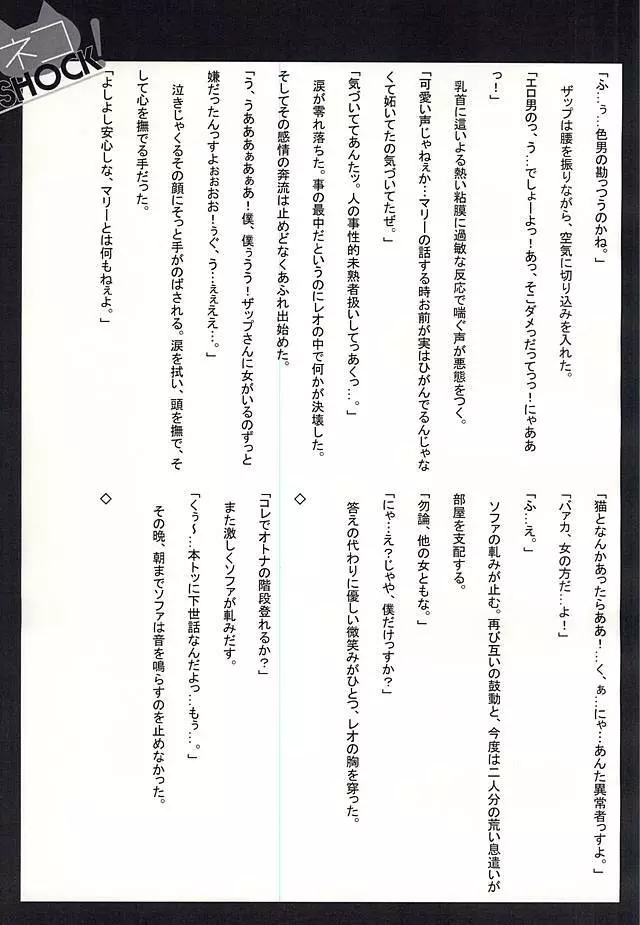 ネコ
SHOCK!
「ふ…ぅ…色男の勘っつうのかね。」
ザップは腰を振りながら、空気に切り込みを入れた。
「エロ男のっ、う…でしょーよっ！あっ、そこダメっだってっっ！にゃああ
っ！」
乳首に這いよる熱い粘膜に過敏な反応で喘ぐ声が悪態をつく。
「可愛い声じゃねぇか…マリーの話する時お前が実はひがんでるんじゃな
くて妬いてたの気づいてたぜ。」
「気づいててあんたッ。人の事性的未熟者扱いしてっあくっ…。」
涙が零れ落ちた。事の最中だというのにレオの中で何かが決壊した。
そしてその感情の奔流は止めどなくあふれ出始めた。
「う、うあああぁあぁあ！僕、僕ぅうう！ザップさんに女がいるのずっと
嫌だったんっすよぉぉおお！ぅぐ、う…ぇぇええ…。」
泣きじゃくるその顔にそっと手がのばされる。涙を拭い、頭を撫で、そ
して心を撫でる手だった。
「よしよし安心しな、マリーとは何もねぇよ。」
「猫となんかあったらああ！…く、ぁ…にゃ…あんた異常者っすよ。」
「バァカ、女の方だ…よ！」
「ふ…え。」
ソファの軋みが止む。再び互いの鼓動と、今度は二人分の荒い息遣いが
部屋を支配する。
「勿論、他の女ともな。」
「にゃ…え？じゃや、僕だけっすか？」
答えの代わりに優しい微笑みがひとつ、レオの胸を穿った。
◇
「コレでオトナの階段登れるか？」
また激しくソファが軋みだす。
「くぅ～…本トッに下世話なんだよっ…もぅ…。」
その晩、朝までソファは音を鳴らすのを止めなかった。
◇